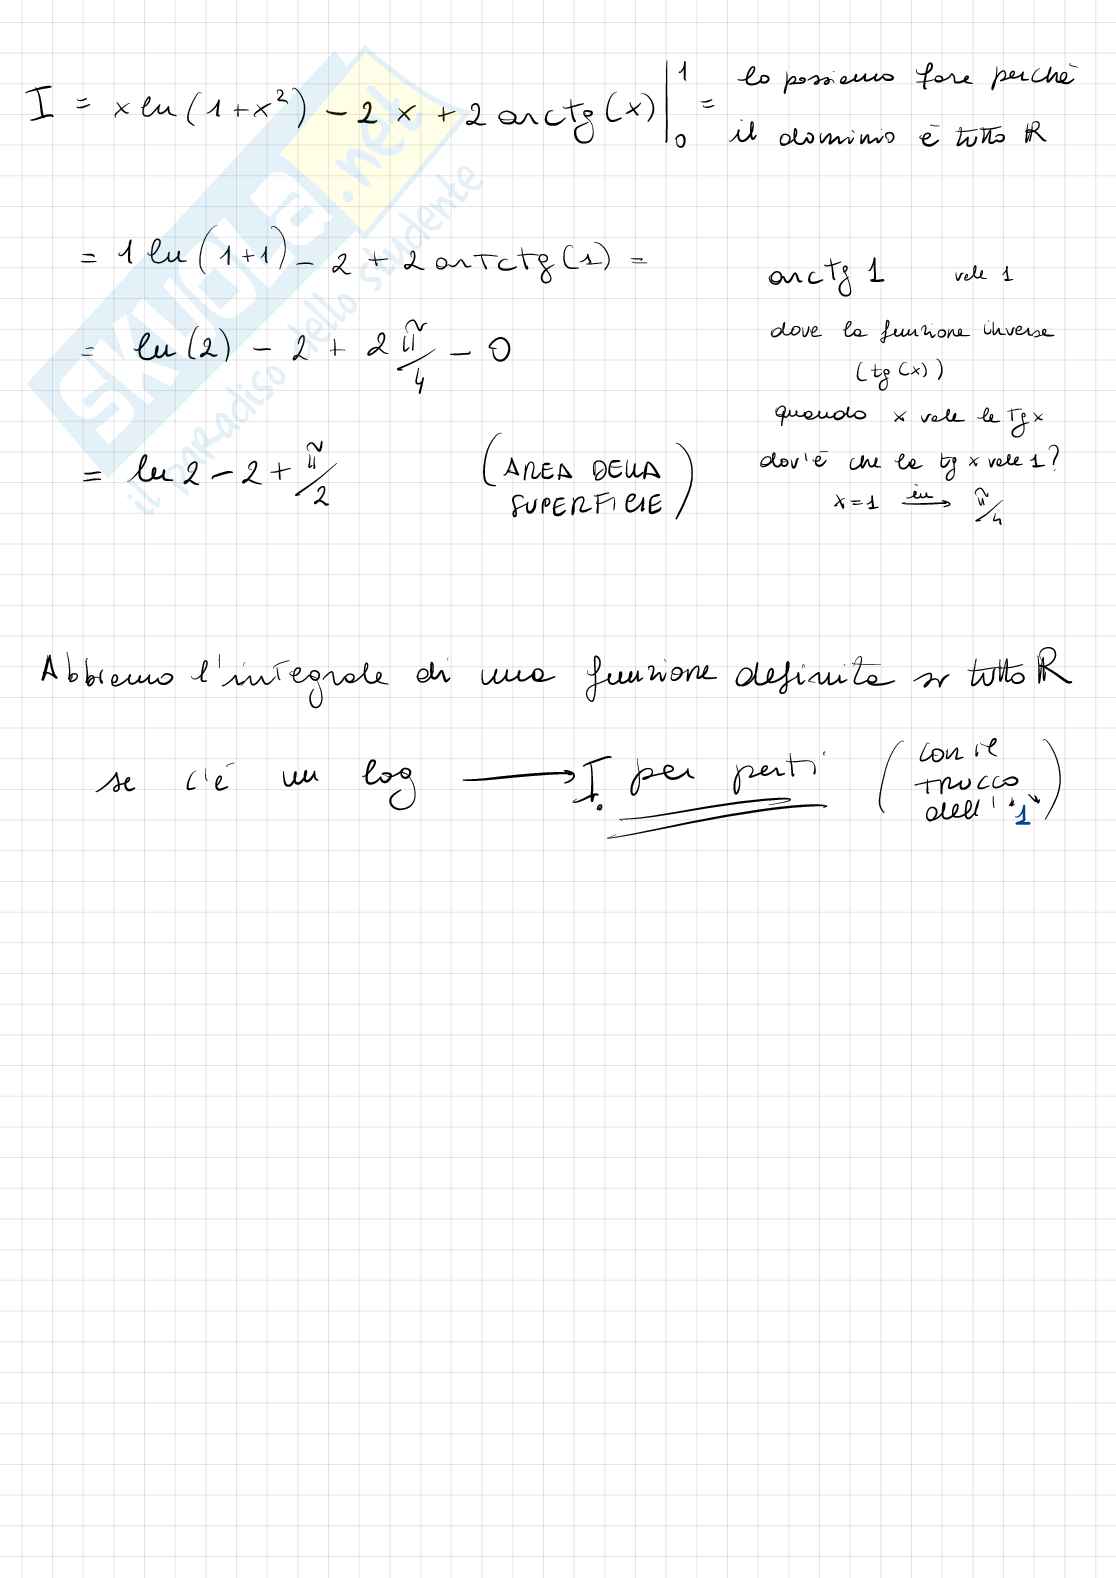 I = x ln(1+x²) - 2x + 2 arctg(x) |₀¹ =
lo possiamo fare perchè
il dominio è tutto ℝ
= 1 ln(1+1) - 2 + 2 arctg(1) =
= ln(2) - 2 + 2 π/4 - 0
= ln 2 - 2 + π/2
(AREA DELLA
SUPERFICIE)
arctg 1 vale 1
dove la funzione inversa
(tg(x))
quando x vale la Tg x
dov'è che la tg x vale 1?
x=1 in → π/4
Abbiamo l'integrale di una funzione definita su tutto ℝ
se c'è un log → I. per parti
(con il
TRUCCO
dell' "1")
SKUOLA.net
il paradiso dello studente